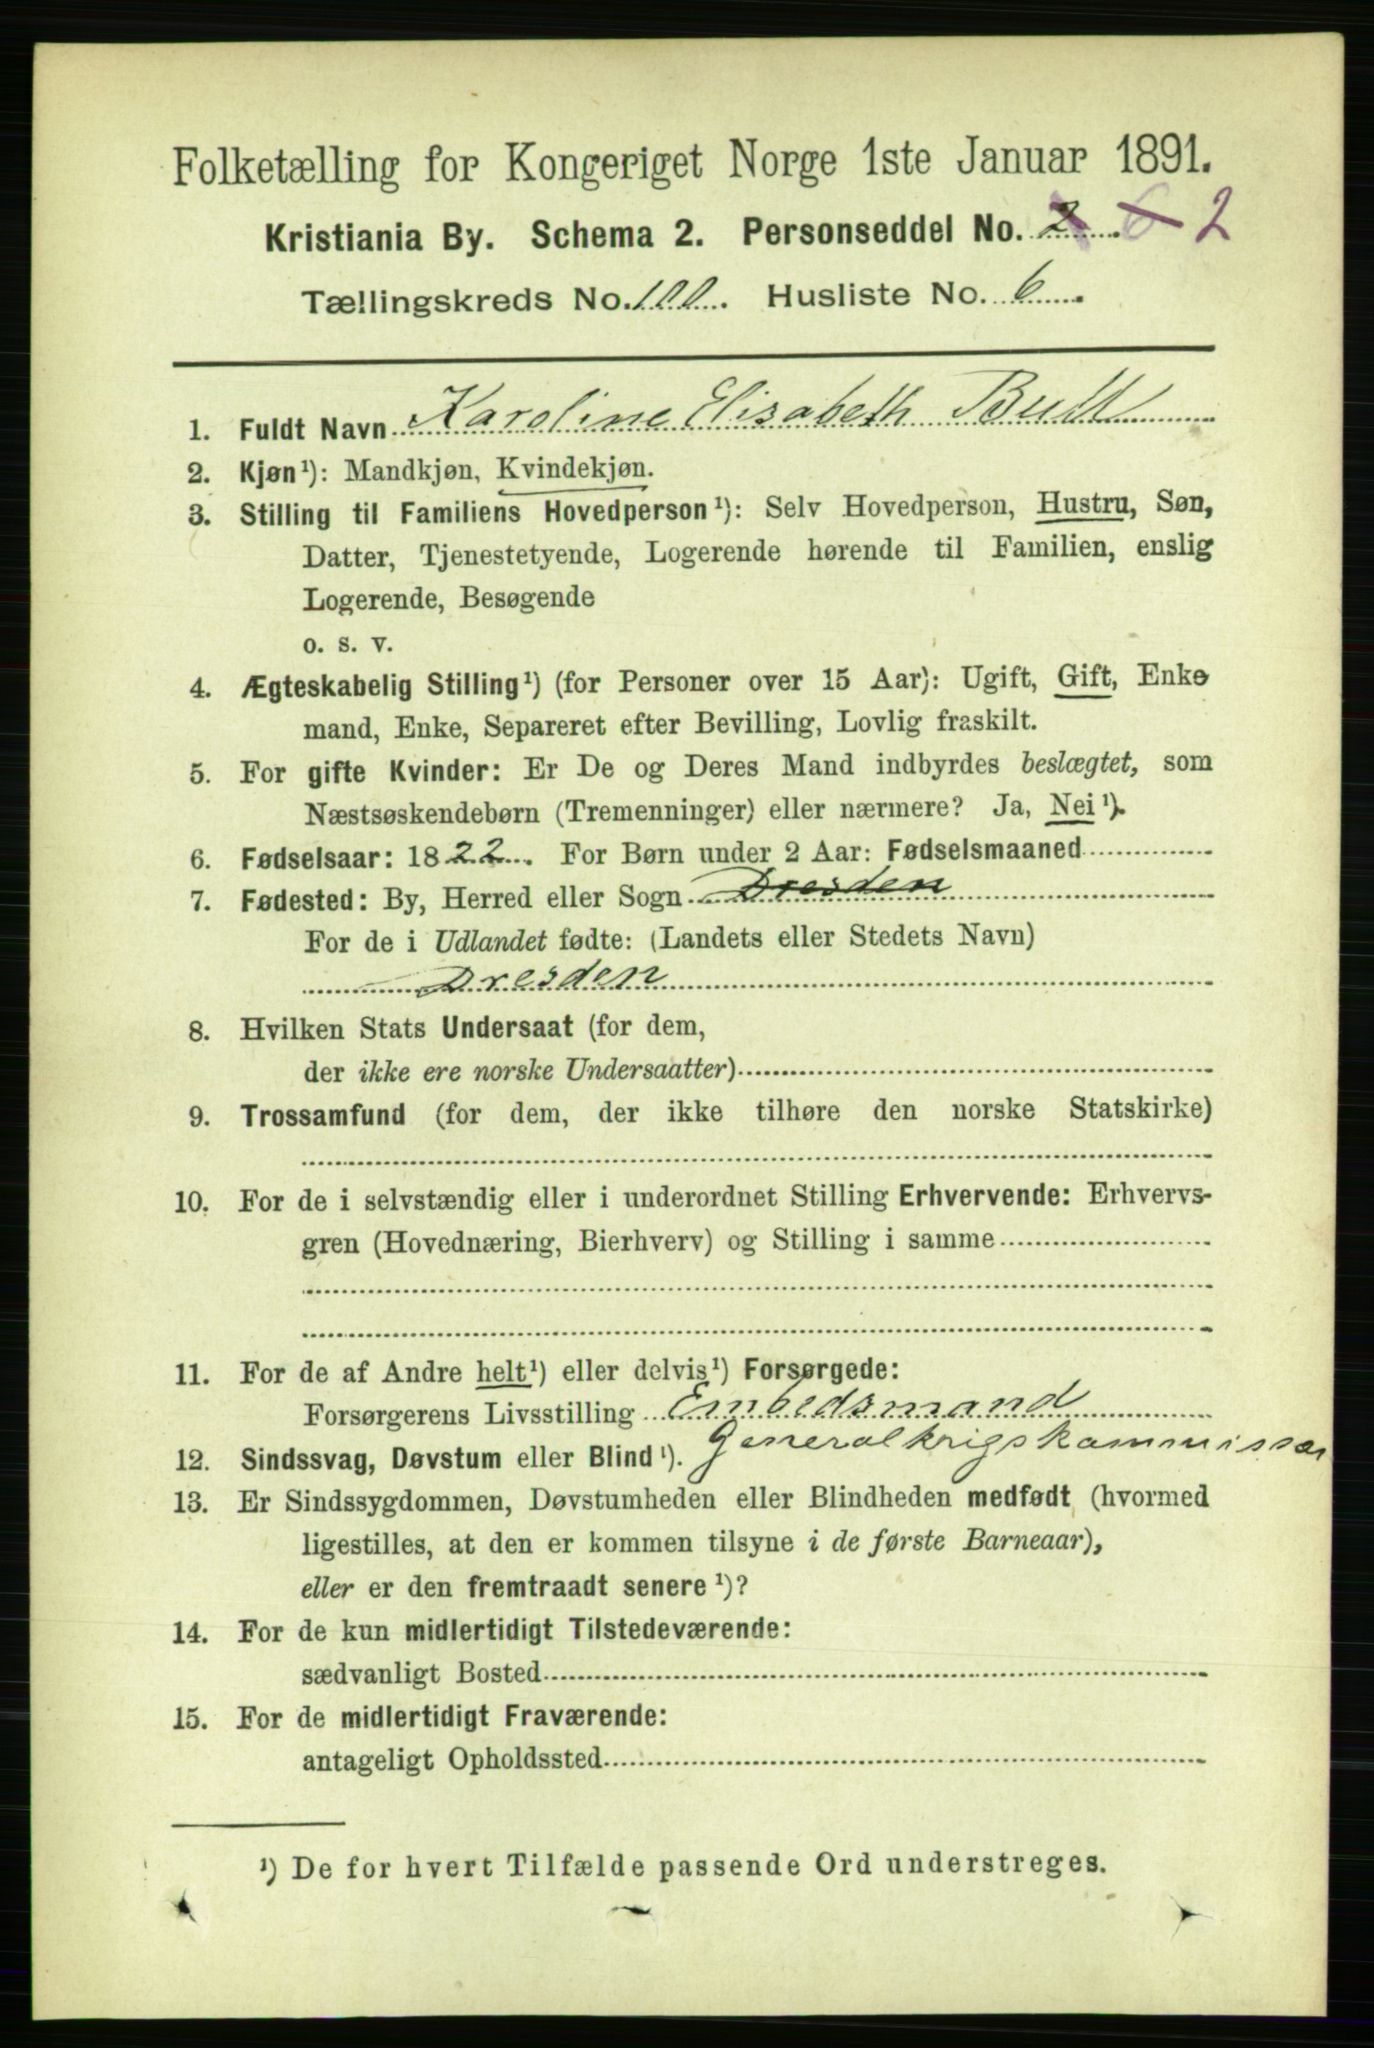 Folketælling for Kongeriget Norge 1ste Januar 1891.
Kristiania By. Schema 2. Personseddel No. 2. 6 2
Tællingskreds No. 100. Husliste No. 6.
1. Fuldt Navn Karoline Elisabeth Bull
2. Kjøn¹): Mandkjøn, Kvindekjøn.
3. Stilling til Familiens Hovedperson¹): Selv Hovedperson, Hustru, Søn,
Datter, Tjenestetyende, Logerende hørende til Familien, enslig
Logerende, Besøgende
o. s. v.
4. Ægteskabelig Stilling¹) (for Personer over 15 Aar): Ugift, Gift, Enke
mand, Enke, Separeret efter Bevilling, Lovlig fraskilt.
5. For gifte Kvinder: Er De og Deres Mand indbyrdes beslægtet, som
Næstsøskendebørn (Tremenninger) eller nærmere? Ja, Nei¹).
6. Fødselsaar: 1822. For Børn under 2 Aar: Fødselsmaaned
7. Fødested: By, Herred eller Sogn Dresden
For de i Udlandet fødte: (Landets eller Stedets Navn)
Dresden
8. Hvilken Stats Undersaat (for dem,
der ikke ere norske Undersaatter)
9. Trossamfund (for dem, der ikke tilhøre den norske Statskirke)
10. For de i selvstændig eller i underordnet Stilling Erhvervende: Erhvervs-
gren (Hovednæring, Bierhverv) og Stilling i samme
11. For de af Andre helt¹) eller delvis¹) Forsørgede:
Forsørgerens Livsstilling Embedsmand
12. Sindssvag, Døvstum eller Blind¹). Generalkrigskommissær
13. Er Sindssygdommen, Døvstumheden eller Blindheden medfødt (hvormed
ligestilles, at den er kommen tilsyne i de første Barneaar),
eller er den fremtraadt senere¹)?
14. For de kun midlertidigt Tilstedeværende:
sædvanligt Bosted
15. For de midlertidigt Fraværende:
antageligt Opholdssted
¹) De for hvert Tilfælde passende Ord understreges.